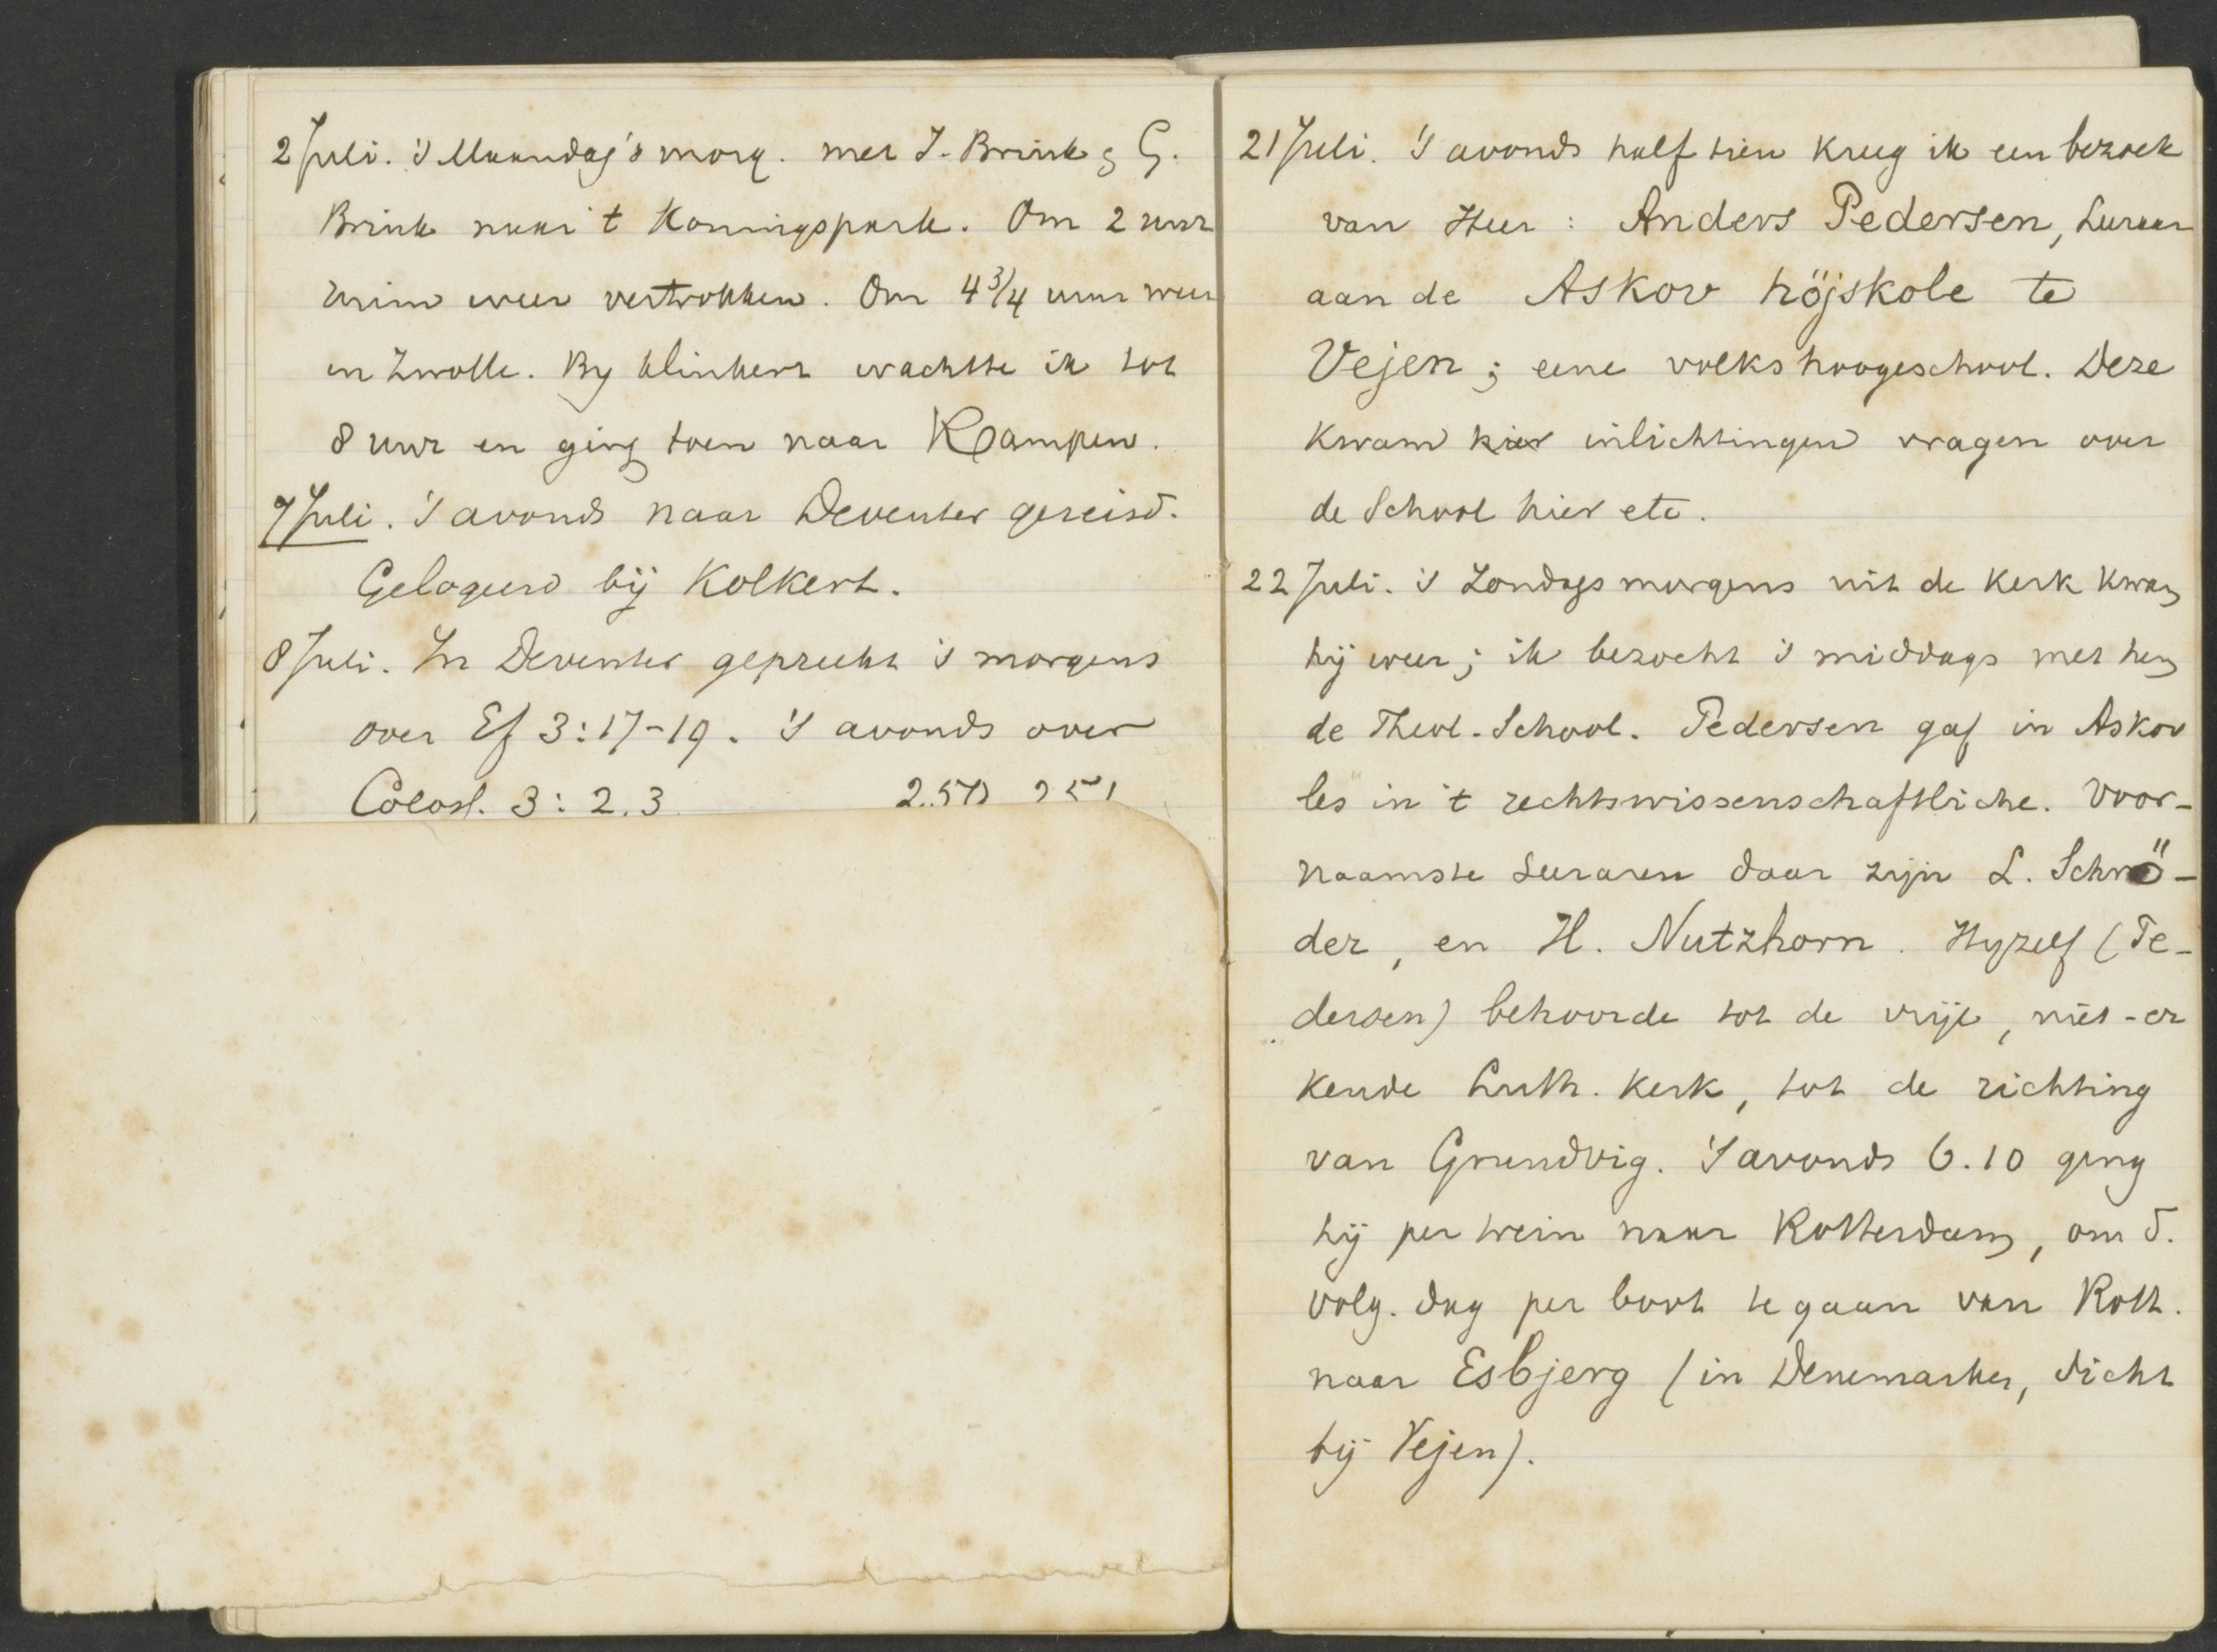 2 Juli. 's Maandag's morg. met J. Brink & G.
Brink naar 't Konningspark. Om 2 uur
weer vertrokken. Om 4 3/4 uur weer
in Zwolle. By Klinkert wachtte ik tot
8 uur en ging toen naar Kampen.
7 Juli. 's avonds naar Deventer gereisd.
Gelogeerd bij Kolkert.
8 Juli. In Deventer gepreekt 's morgens
over Ef 3:17-19. 's avonds over
Coloss. 3: 2.3
21 Juli. 's avonds half tien kreeg ik een bezoek
van Heer: Anders Pedersen, Leeraar
aan de Askov höjskole te
Vejen; eene volkshoogeschool. Deze
kwam hier inlichtingen vragen over
de School hier etc.
22 Juli. 's Zondags morgens uit de kerk kwam
hij weer; ik bezocht 's middags met hem
de Theol. School. Pedersen gaf in Askov
les in 't rechtswissenschaftliche. Voor-
naamste Leeraren daar zijn L. Schrö-
der, en H. Nutzhorn. Hyzelf (Pe-
dersen) behoorde tot de vrije, niet-er
kende Luth. kerk, tot de richting
van Grundvig. 's avonds 6.10 ging
hij per trein naar Rotterdam, om d.
volg. dag per boot te gaan van Rott.
naar Esbjerg (in Denemarken, dicht
bij Vejen).